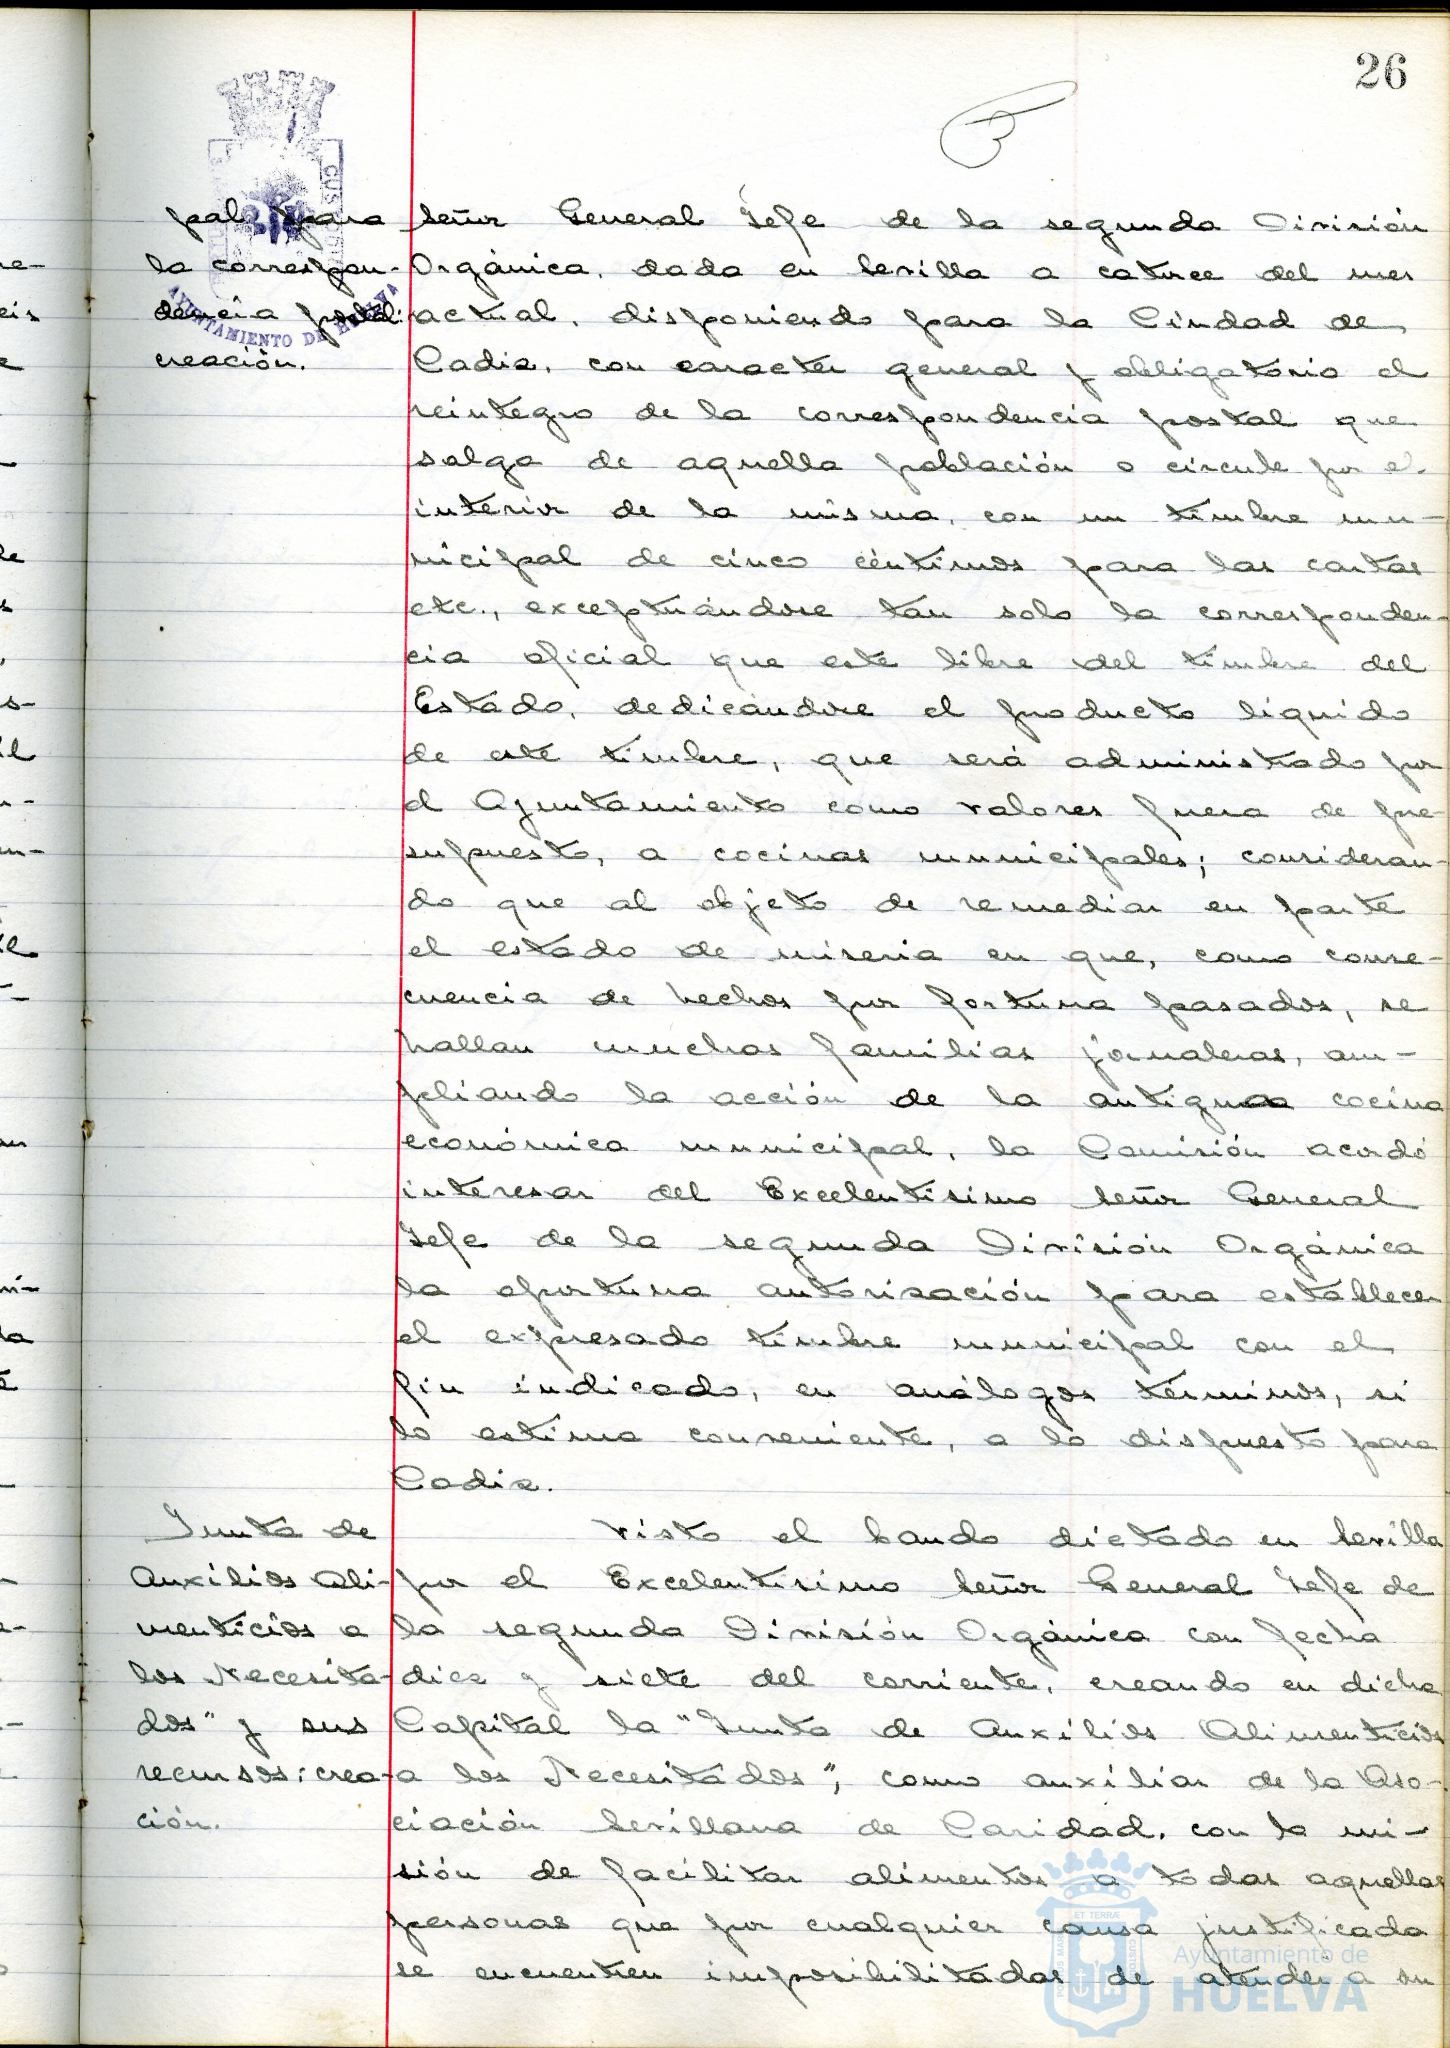 26
pal para
la correspon-
dencia postal:
creación.
señor General Jefe de la segunda División
Orgánica, dada en Sevilla a catorce del mes
actual, disponiendo para la Ciudad de
Cadiz, con caracter general y obligatorio el
reintegro de la correspondencia postal que
salga de aquella población o circule por el
interior de la misma, con un timbre mu-
nicipal de cinco céntimos para las cartas
etc., exceptuándose tan solo la corresponden-
cia oficial que este libre del timbre del
Estado, dedicándose el producto líquido
de este timbre, que será administrado por
el Ayuntamiento como valores fuera de pre-
supuesto, a cocinas municipales; consideran-
do que al objeto de remediar en parte
el estado de miseria en que, como conse-
cuencia de hechos por fortuna pasados, se
hallan muchas familias jornaleras, am-
pliando la acción de la antigua cocina
económica municipal, la Comisión acordó
interesar del Excelentísimo señor General
Jefe de la segunda División Orgánica
la oportuna autorización para establecer
el expresado timbre municipal con el
fin indicado, en análogos términos, si
lo estima conveniente, a lo dispuesto para
Cadiz.
Junta de
Auxilios Ali-
menticios a
los Necesita-
dos" y sus
recursos: crea-
ción.
Visto el bando dictado en Sevilla
por el Excelentísimo Señor General Jefe de
la segunda División Orgánica con fecha
diez y siete del corriente, creando en dicha
Capital la "Junta de Auxilios Alimenticios
a los Necesitados", como auxiliar de la Aso-
ciación Sevillana de Caridad, con la mi-
sión de facilitar alimentos a todas aquellas
personas que por cualquier causa justificada
se encuentren imposibilitadas de atender a su
AYUNTAMIENTO DE HUELVA
Ayuntamiento de
HUELVA